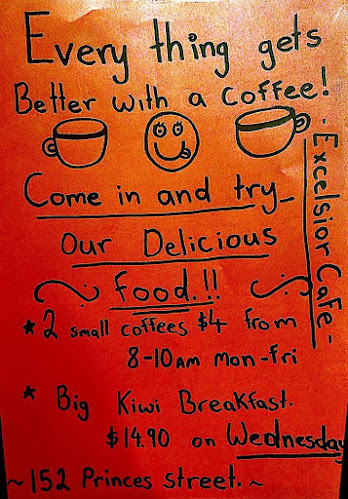 Every thing gets
Better with a coffee!
- Excelsior Cafe -
Come in and try_
Our Delicious
~ food.!! ~
* 2 small coffees $4 from
8-10AM Mon-Fri
* Big Kiwi Breakfast.
$14.90 on Wednesday
~ 152 Princes Street. ~